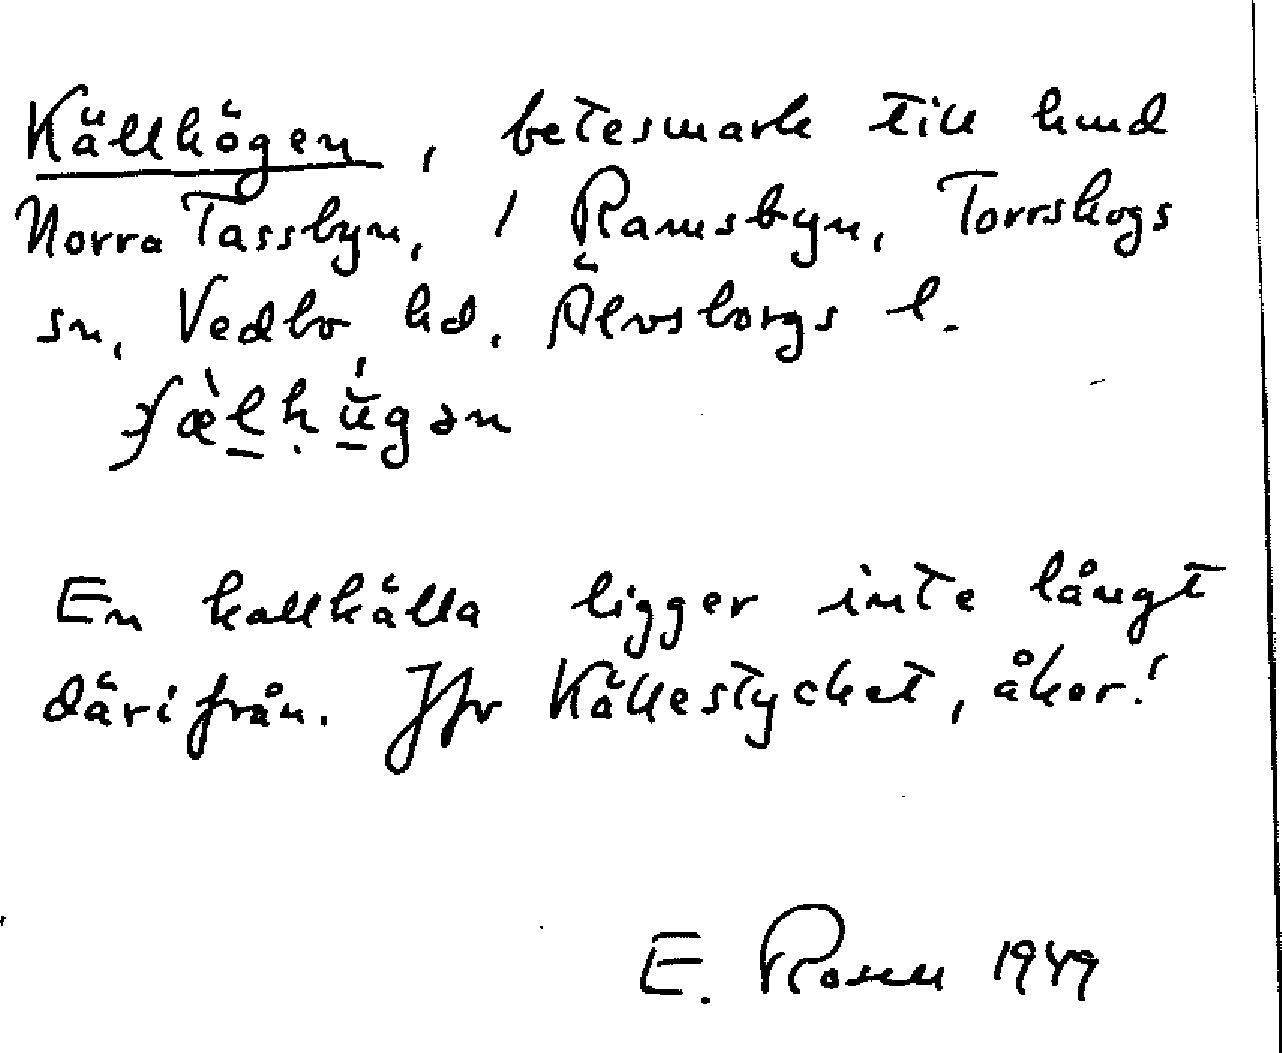 Källhögen, betesmark till hmd
Norra Tassbyn, 1 Ramsbyn, Torrskogs
sn, Vedbo hd. Älvsborgs l.
En kallkälla ligger inte långt
därifrån. Jfr Källestycket, åker!
E. Rosell 1949